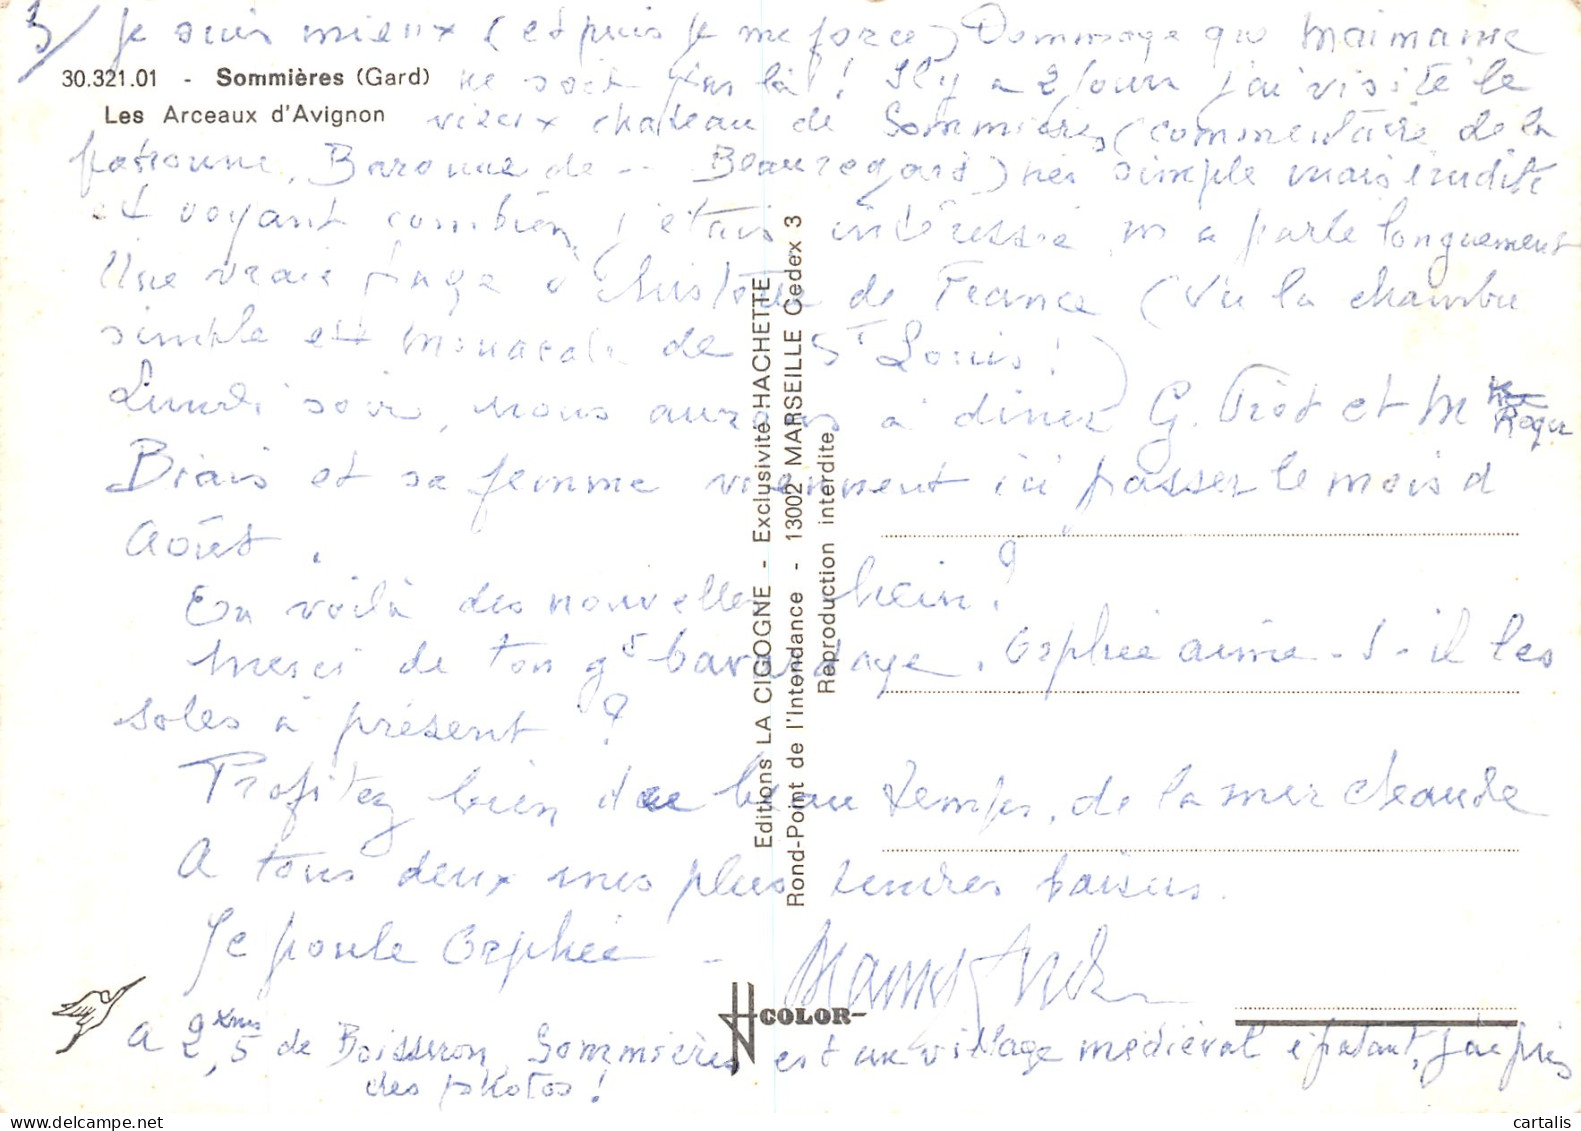 3/ Je suis mieux (et puis je me force) Dommage que Maimaine
30.321.01 - Sommières (Gard)
Les Arceaux d'Avignon
ne soit pas là ! Il y a 2 jours j'ai visité le
vieux chateau de Sommières (commentaire de la
patronne, Baronne de -- Beauregard) très simple mais érudite
et voyant combien j'étais intéressée m'a parlé longuement
Une vraie page d'histoire de France (vu la chambre
simple et monacale de St Louis !)
Lundi soir, nous aurons à diner G. Viot et M Roger
Biais et sa femme viennent ici passer le mois d
Août.
En voilà des nouvelles hein ?
Merci de ton gd bavardage. Orphée aime-t-il les
soles à présent ?
Profitez bien du beau temps, de la mer chaude
A tous deux mes plus tendres baisers.
Je poule Orphée -
A 2,5 Kms de Boisseron, Sommières est un village médiéval épatant, j'ai pris
des photos !
Editions LA CIGOGNE - Exclusivité HACHETTE
Rond-Point de l'Intendance - 13002 MARSEILLE Cedex 3
Reproduction interdite
COLOR
cartalis